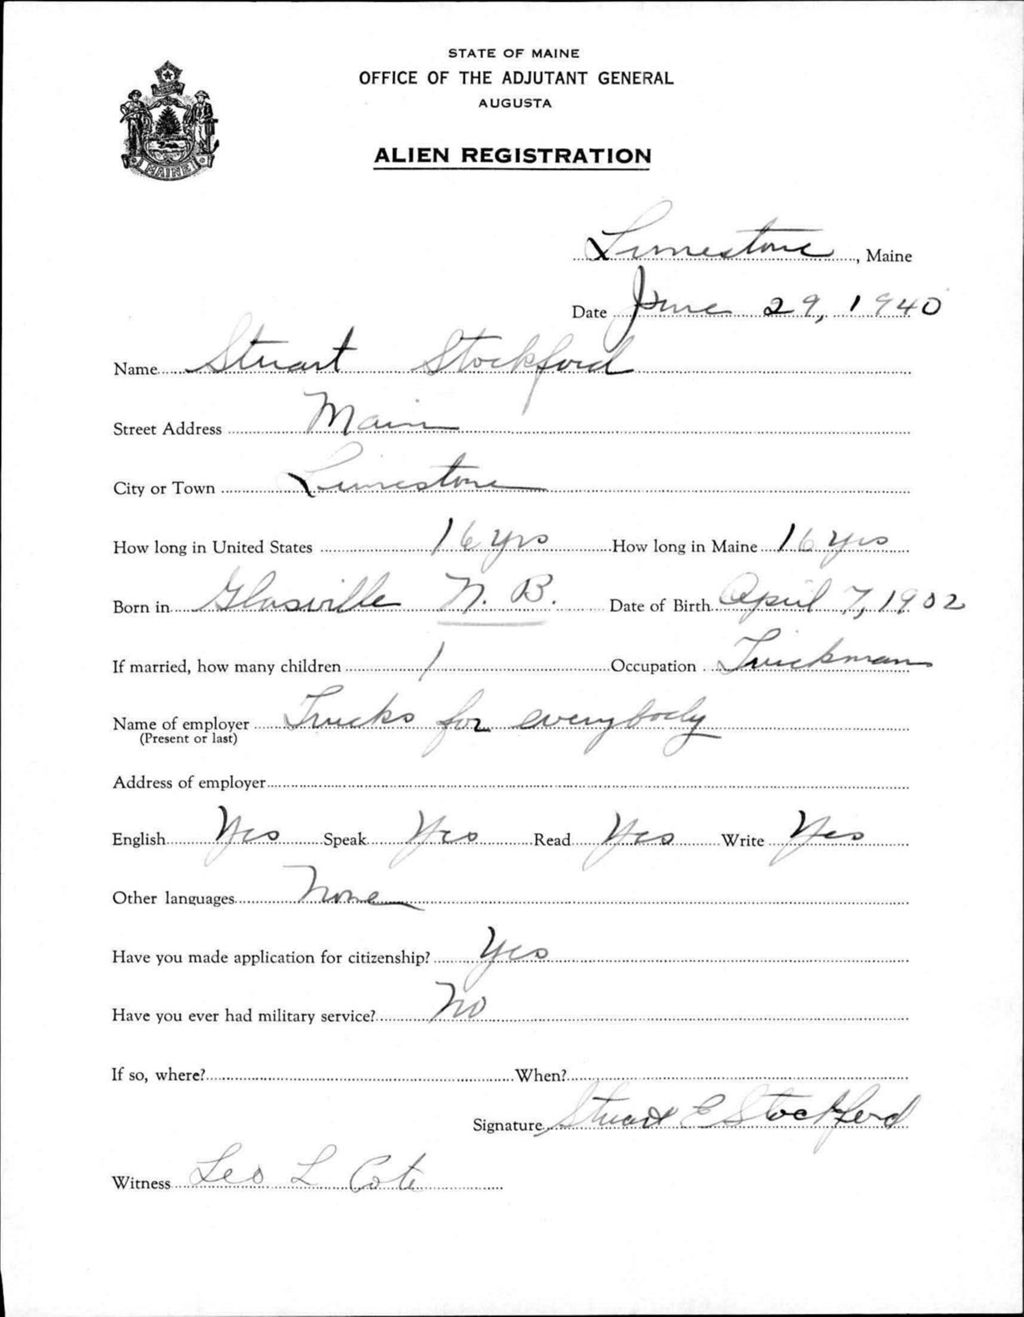 STATE OF MAINE
OFFICE OF THE ADJUTANT GENERAL
AUGUSTA
ALIEN REGISTRATION
MAINE
Limestone, Maine
Date June 29, 1940
Name Stuart Stockford
Street Address Main
City or Town Limestone
How long in United States 16 yrs How long in Maine 16 yrs
Born in Glasville N. B. Date of Birth April 7, 1902
If married, how many children 1 Occupation Truckman
Name of employer Trucks for everybody
(Present or last)
Address of employer
English Yes Speak Yes Read Yes Write Yes
Other languages None
Have you made application for citizenship? Yes
Have you ever had military service? No
If so, where? When?
Signature Stuart E Stockford
Witness Leo L Cote